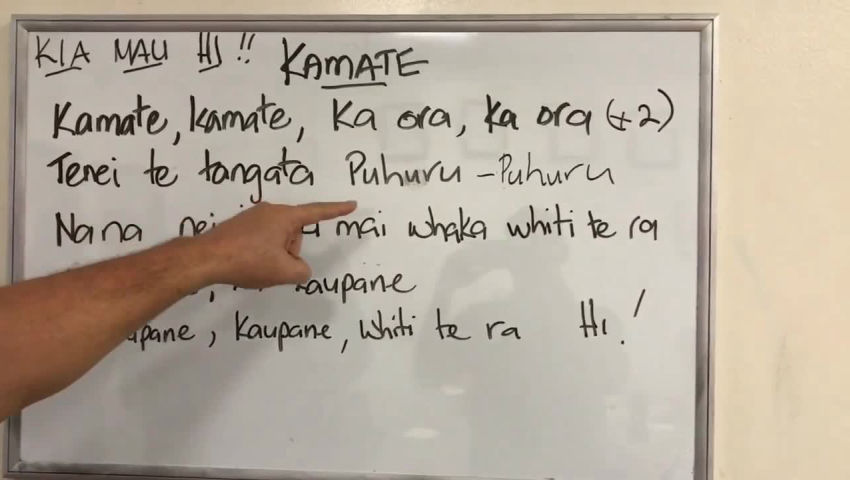 KIA MAU HI !! KAMATE
Kamate, kamate, Ka ora, Ka ora (+2)
Tenei te tangata Puhuru - Puhuru
Nana mai whaka whiti te ra
kaupane
Kaupane, whiti te ra Hi!